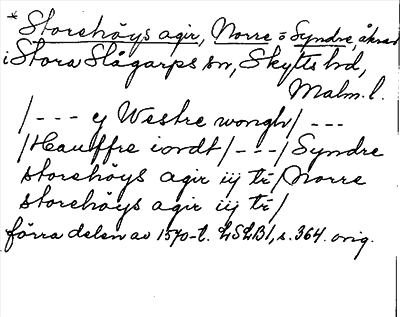 * Storehöys agir, Norre o Syndre, åkrar
i Stora Slågarps sn, Skytts hd,
Malm. l.
/--- ej Westre wongh/ ---
/Hauffre iordt/---/Syndre
storehöys agir iij tr/Norre
storehöys agir iij tr/
förra delen av 1570-t. LSLB1, s. 364. orig.